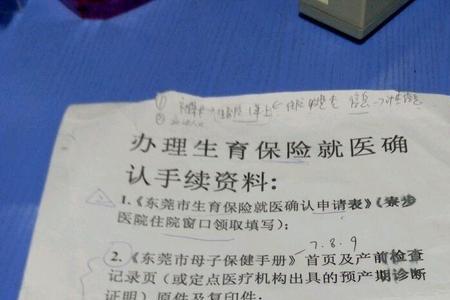 ①
②
办理生育保险就医确
认手续资料:
1.《东莞市生育保险就医确认申请表》(寮步
医院住院窗口领取填写);
7.8.9
2.《东莞市母子保健手册》首页及产前检查
记录页(或定点医疗机构出具的预产期诊断
证明)原件及复印件;